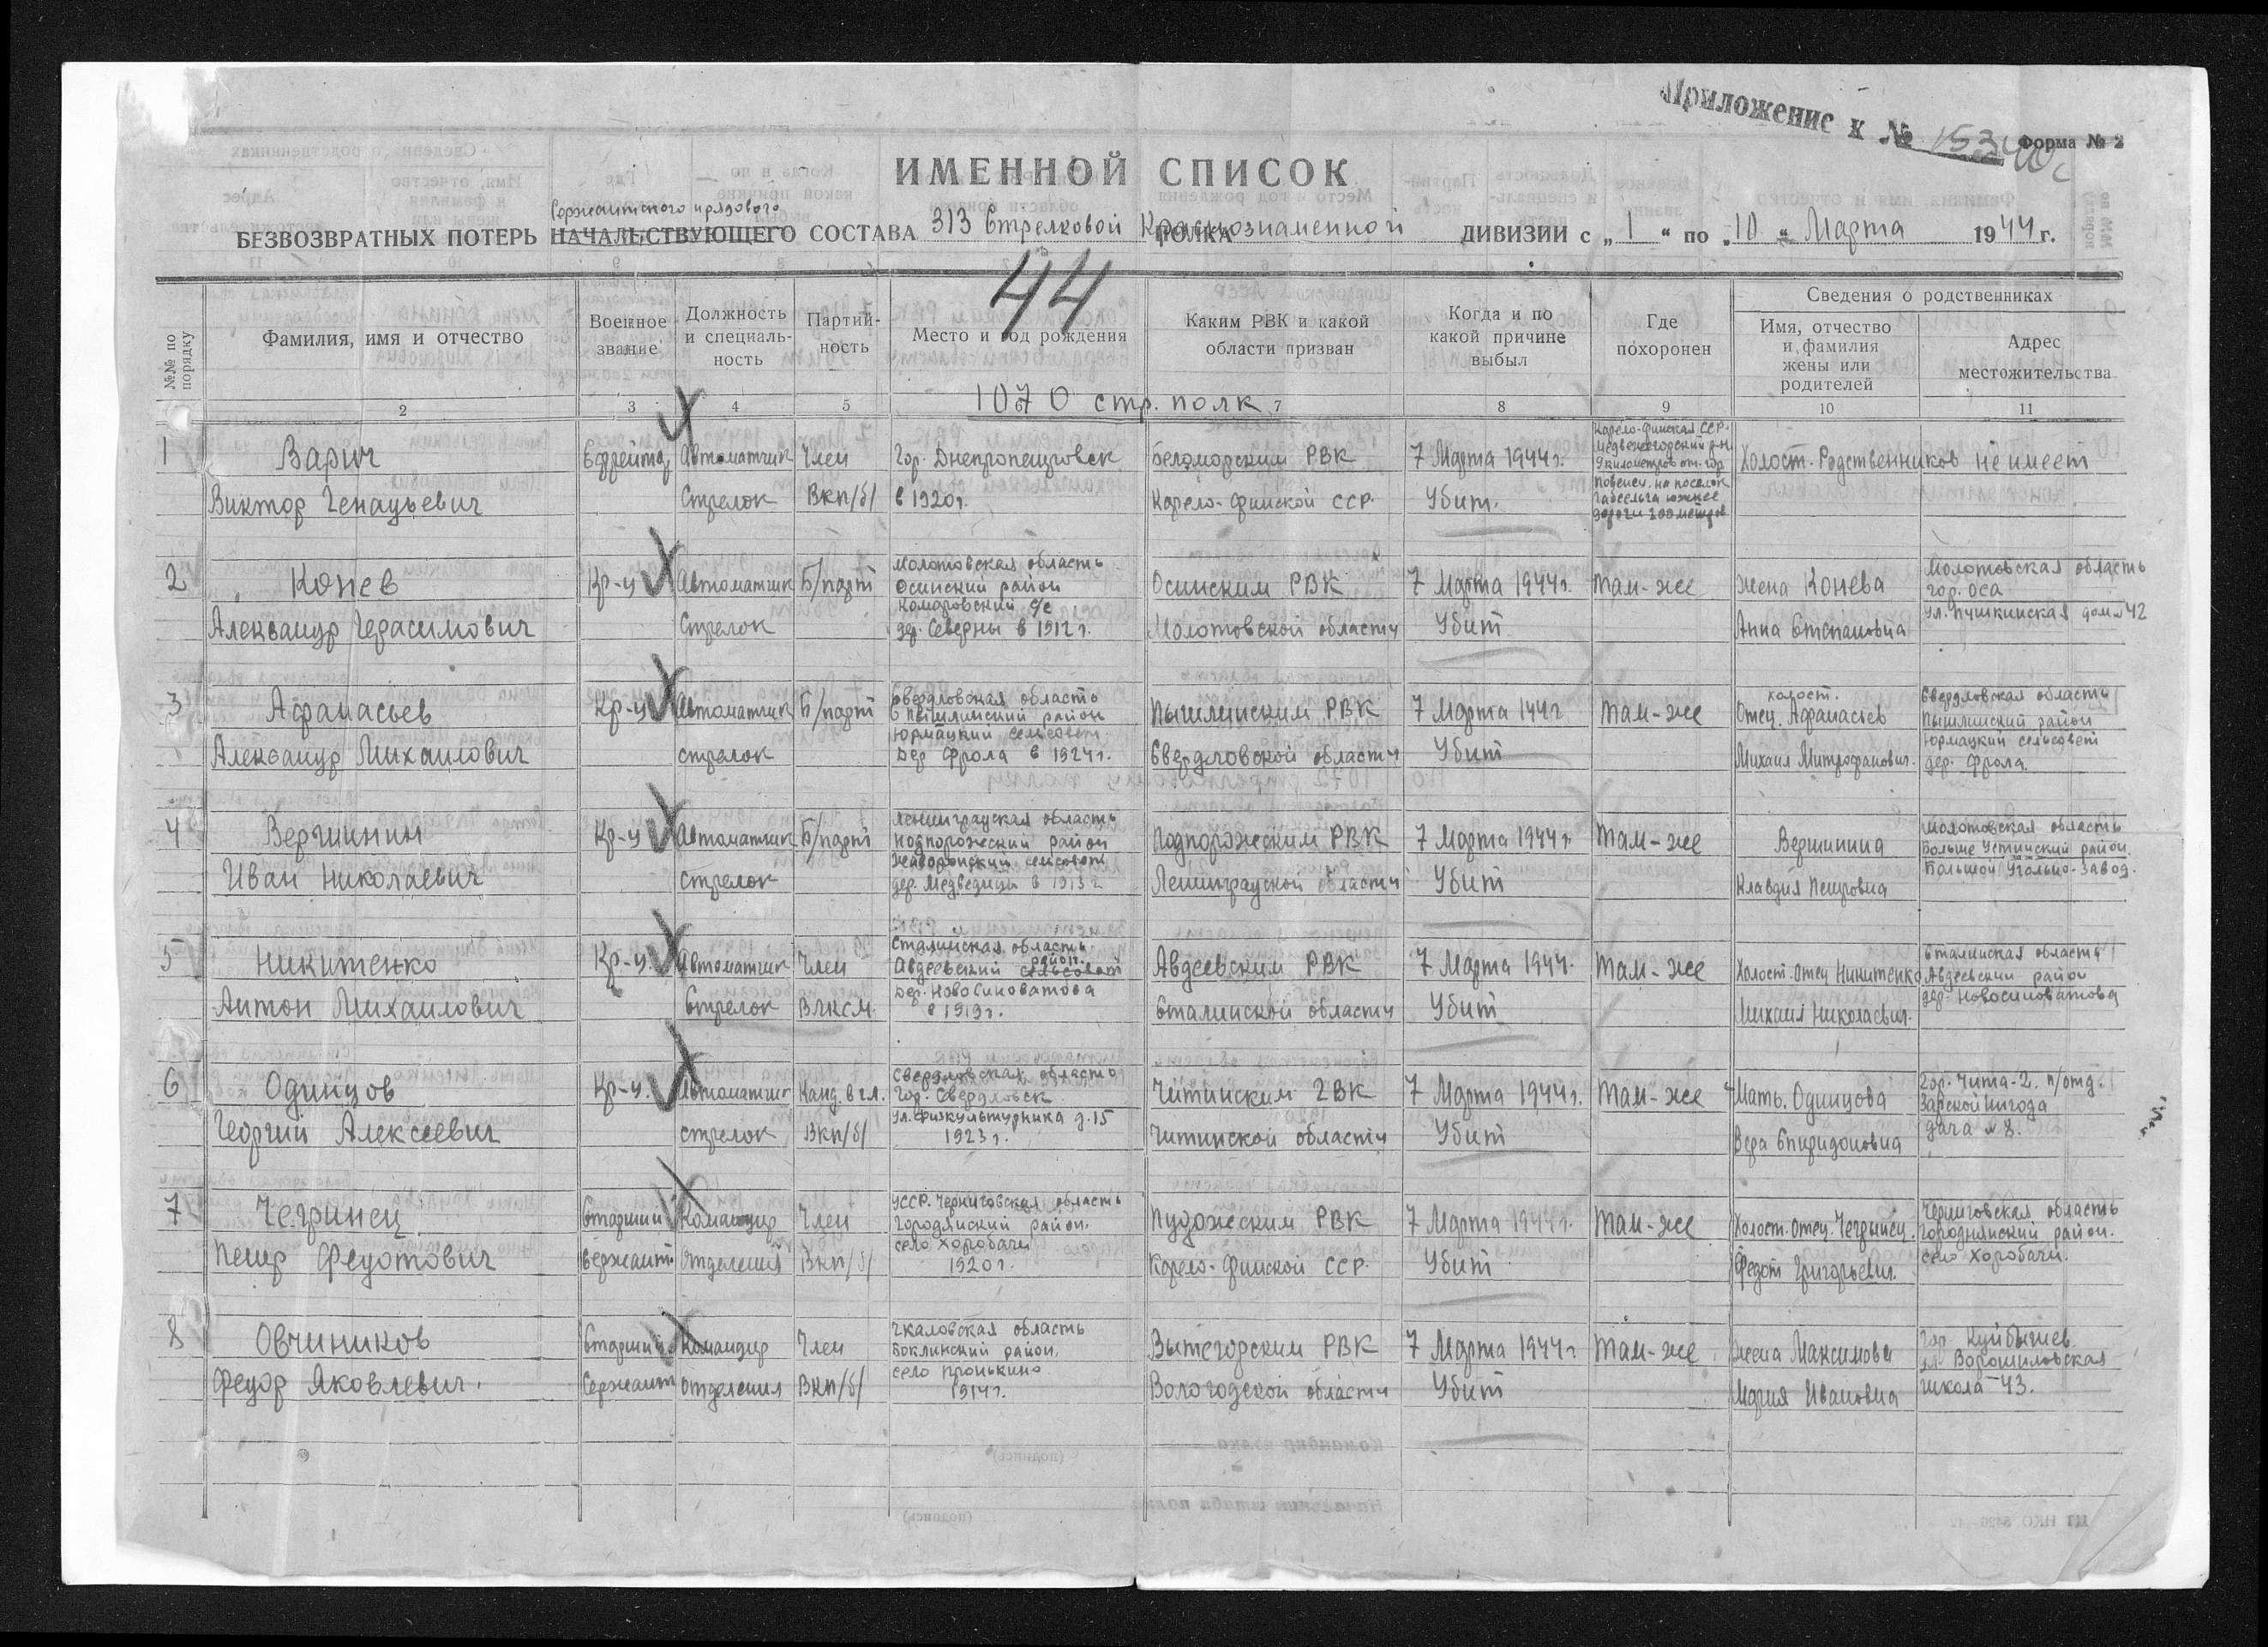 Приложение к № 153
Форма № 2
ИМЕННОЙ СПИСОК
Сержантского и рядового
БЕЗВОЗВРАТНЫХ ПОТЕРЬ НАЧАЛЬСТВУЮЩЕГО СОСТАВА 313 Стрелковой Краснознаменной ПОЛКА ДИВИЗИИ с „1“ по „10“ Марта 1944 г.
44
№№ по порядку
Фамилия, имя и отчество
Военное звание
Должность и специальность
Партийность
Место и год рождения
Каким РВК и какой области призван
Когда и по какой причине выбыл
Где похоронен
Сведения о родственниках
Имя, отчество и фамилия жены или родителей
Адрес местожительства
2 3 4 5 6 7 8 9 10 11
1070 стр. полк
1
Варич
Виктор Генадьевич
Ефрейтор
Автоматчик
Стрелок
Член
ВКП/б/
Гор. Днепропетровск
в 1920г.
Беломорским РВК
Карело-Финской ССР.
7 Марта 1944г.
Убит.
Карело-Финская ССР.
Медвежегорский р-н
километров от гор
Повенец. на поселок
Габсельга южнее
дороги 200 метров
Холост. Родственников не имеет
2
Конев
Александр Герасимович
Кр-ц
Автоматчик
Стрелок
Б/парт
Молотовская область
Осинский район
Комаровский с/с
дер. Северны в 1912г.
Осинским РВК
Молотовской области
7 Марта 1944г.
Убит
там-же
жена Конева
Анна Степановна
Молотовская область
гор. Оса
ул. Пушкинская дом 42
3
Афанасьев
Александр Михаилович
Кр-ц
Автоматчик
стрелок
Б/парт
Свердловская область
Пышминский район
Юрмацкий сельсовет.
Дер Фрола в 1924г.
Пышминским РВК
Свердловской области
7 Марта 144г
Убит
там-же
холост.
Отец. Афанасьев
Михаил Митрофанович.
Свердловская область
Пышминский район
Юрмацкий сельсовет
дер. Фрола.
4
Вершинин
Иван Николаевич
Кр-ц
Автоматчик
стрелок
Б/парт
Ленинградская область
Подпорожский район
сельсовет
дер. Медведицы в 1913г
Подпорожским РВК
Ленинградской области
7 Марта 1944г
Убит
там-же
Вершинина
Клавдия Петровна
Молотовская область
Больше Устинский район.
Большой Угольно-Завод.
5
Никитенко
Антон Михаилович
Кр-ц
Автоматчик
Стрелок
Член
ВЛКСМ.
Сталинская область.
район.
Авдеевский сельсовет
Дер. Новосиноватова
в 1919г.
Авдеевским РВК
Сталинской области
7 Марта 1944.
Убит
там-же
Холост. Отец Никитенко
Михаил Николаевич.
Сталинская область
Авдеевский район
дер. Новосиноватова
6
Одинцов
Георгий Алексеевич
Кр-ц.
Автоматчик
стрелок
Канд. в чл.
ВКП/б/
Свердловская область
Гор. Свердловск
ул. Физкультурника д. 15
1923г.
Читинским ГВК
Читинской области
7 Марта 1944г.
Убит
там-же
Мать. Одинцова
Вера Спиридоновна
Гор. Чита-2. п/отд.
дача № 8.
7
Чегринец
Петр Федотович
Старший
Сержант
Командир
Отделения
Член
ВКП/б/
УССР. Черниговская область
Городянский район.
село Хоробачи
1920г.
Пудожским РВК
Карело-Финской ССР.
7 Марта 1944г.
Убит
там-же
Холост. Отец. Чегринец.
Федот Григорьевич.
Черниговская область
Городнянский район.
село Хоробачи.
8
Овчиников
Федор Яковлевич.
Старший
Сержант
Командир
отделения
Член
ВКП/б/
Чкаловская область
Боклинский район.
село Пронькино
1914г.
Вытегорским РВК
Вологодской области
7 Марта 1944г
Убит
там-же
жена Максимова
Мария Ивановна
Гор Куйбышев.
ул Ворошиловская
школа 43.